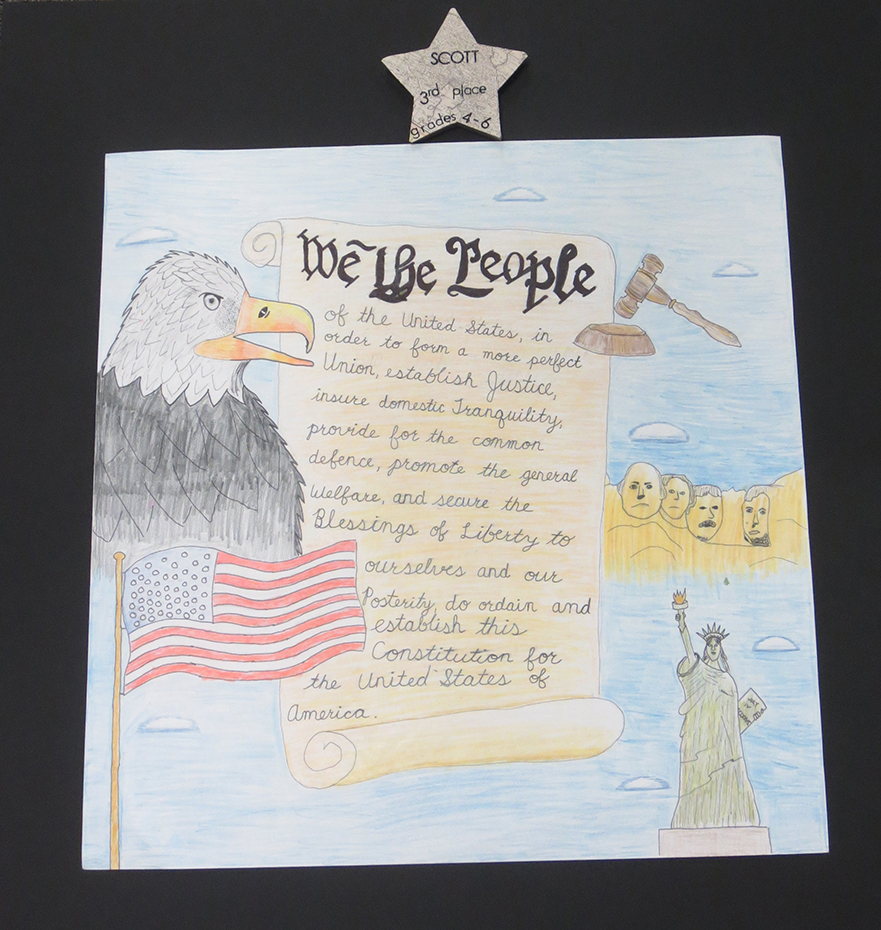 SCOTT
3rd place
grades 4-6
We the People
of the United States, in
order to form a more perfect
Union, establish Justice,
insure domestic Tranquility,
provide for the common
defence, promote the general
Welfare, and secure the
Blessings of Liberty to
ourselves and our
Posterity, do ordain and
establish this
Constitution for
the United States of
America.